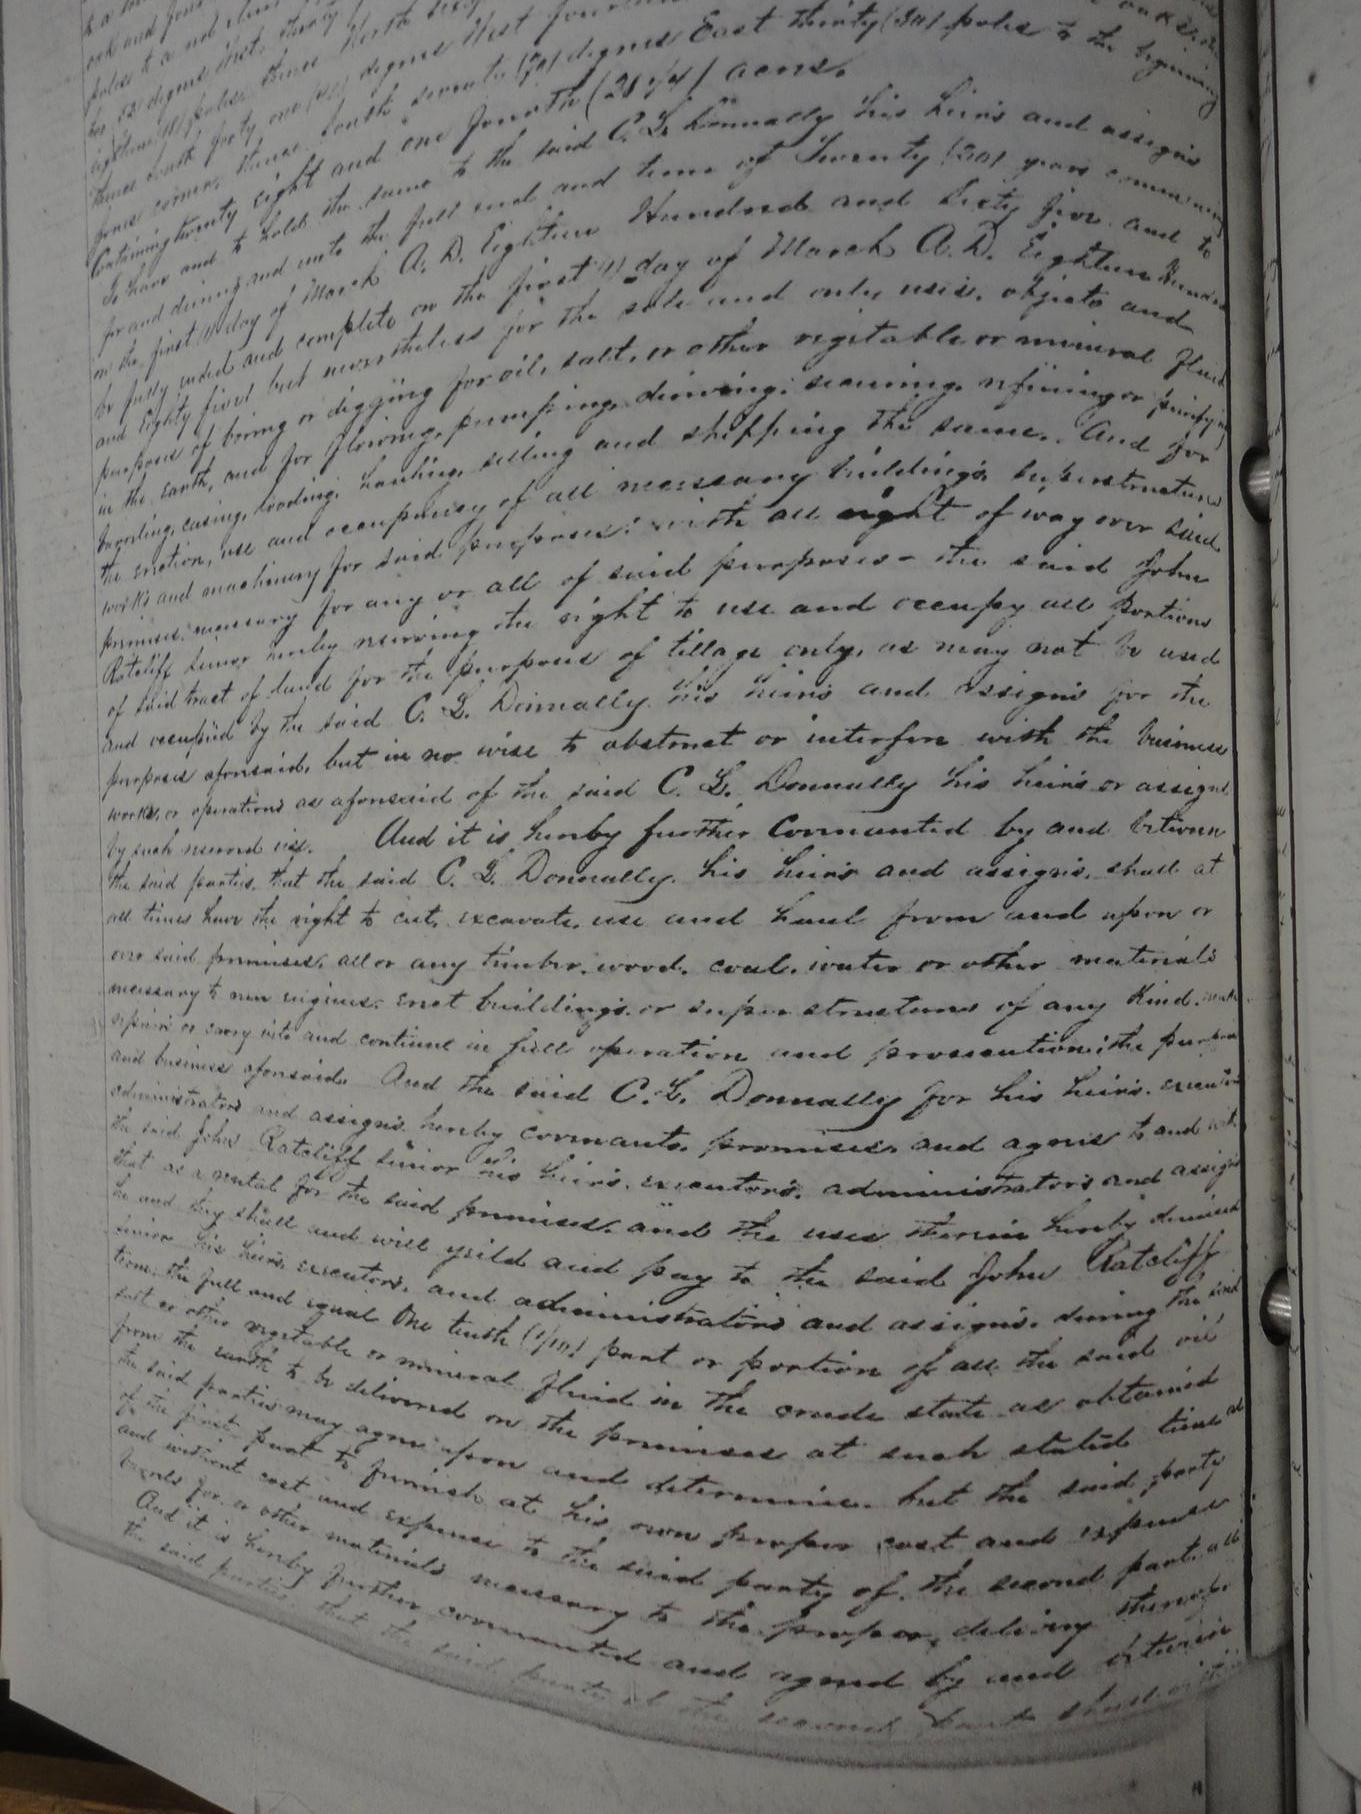 oak and
poles to a red
degrees West thirty thence North
eighteen poles, thence degrees West fourteen
thence South forty one degrees East thirty (30) poles to the beginning
corner, thence South seventy (70)
Containing twenty eight and one fourth (28 1/4) acres.
To have and to hold the same to the said C. L. Donnally his heirs and assigns
for and during and unto the full end and term of Twenty (20) years commencing
on the first (1) day of March A. D. Eighteen Hundred and Sixty five and to
be fully ended and complete on the first (1) day of March A. D. Eighteen Hundred
and Eighty five but nevertheless for the sole and only uses, objects and
purposes of boring or digging for oil, salt, or other vegitable or mineral fluid
in the earth, and for flowing, pumping, deriving, securing, refining or purifying
barreling, casing, loading, hauling, selling and shipping the same. And for
the erection, use and occupancy of all necessary buildings, superstructures
works and machinery for said purposes: with all right of way over said
premises necessary for any or all of said purposes - the said John
Ratcliff senior hereby reserving the right to use and occupy all portions
of said tract of land for the purposes of tillage only, as may not be used
and occupied by the said C. L. Donnally his heirs and assigns for the
purposes aforesaid, but in no wise to obstruct or interfere with the business
works, or operations as aforesaid of the said C. L. Donnally his heirs or assigns
by such reserved use. And it is hereby further Covenanted by and between
the said parties, that the said C. L. Donnally his heirs and assigns, shall at
all times have the right to cut, excavate, use and haul from and upon or
over said premises, all or any timber, wood, coal, water or other materials
necessary to run engines, erect buildings or super structures of any kind, make
repairs or carry into and continue in full operation and prosecution; the purposes
and business aforesaid. And the said C. L. Donnally for his heirs, executors
administrators and assigns, hereby covenants, promises, and agrees to and with
the said John Ratcliff senior his heirs, executors, administrators and assigns
that as a rental for the said premises and the uses therein hereby demised
he and they shall and will yeild and pay to the said John Ratcliff
senior his heirs, executors, and administrators and assigns, during the said
term, the full and equal One tenth (1/10) part or portion of all the said oil
salt or other vegitable or mineral fluid in the crude state as obtained
from the earth to be delivered on the premises at such stated times as
the said parties may agree upon and determine, but the said party
of the first part to furnish at his own proper cost and expense
and without cost and expense to the said party of the second part all
barrels for or other materials necessary to the proper delivery thereof
And it is hereby further covenanted and agreed by and between
the said parties that the said party of the second part shall